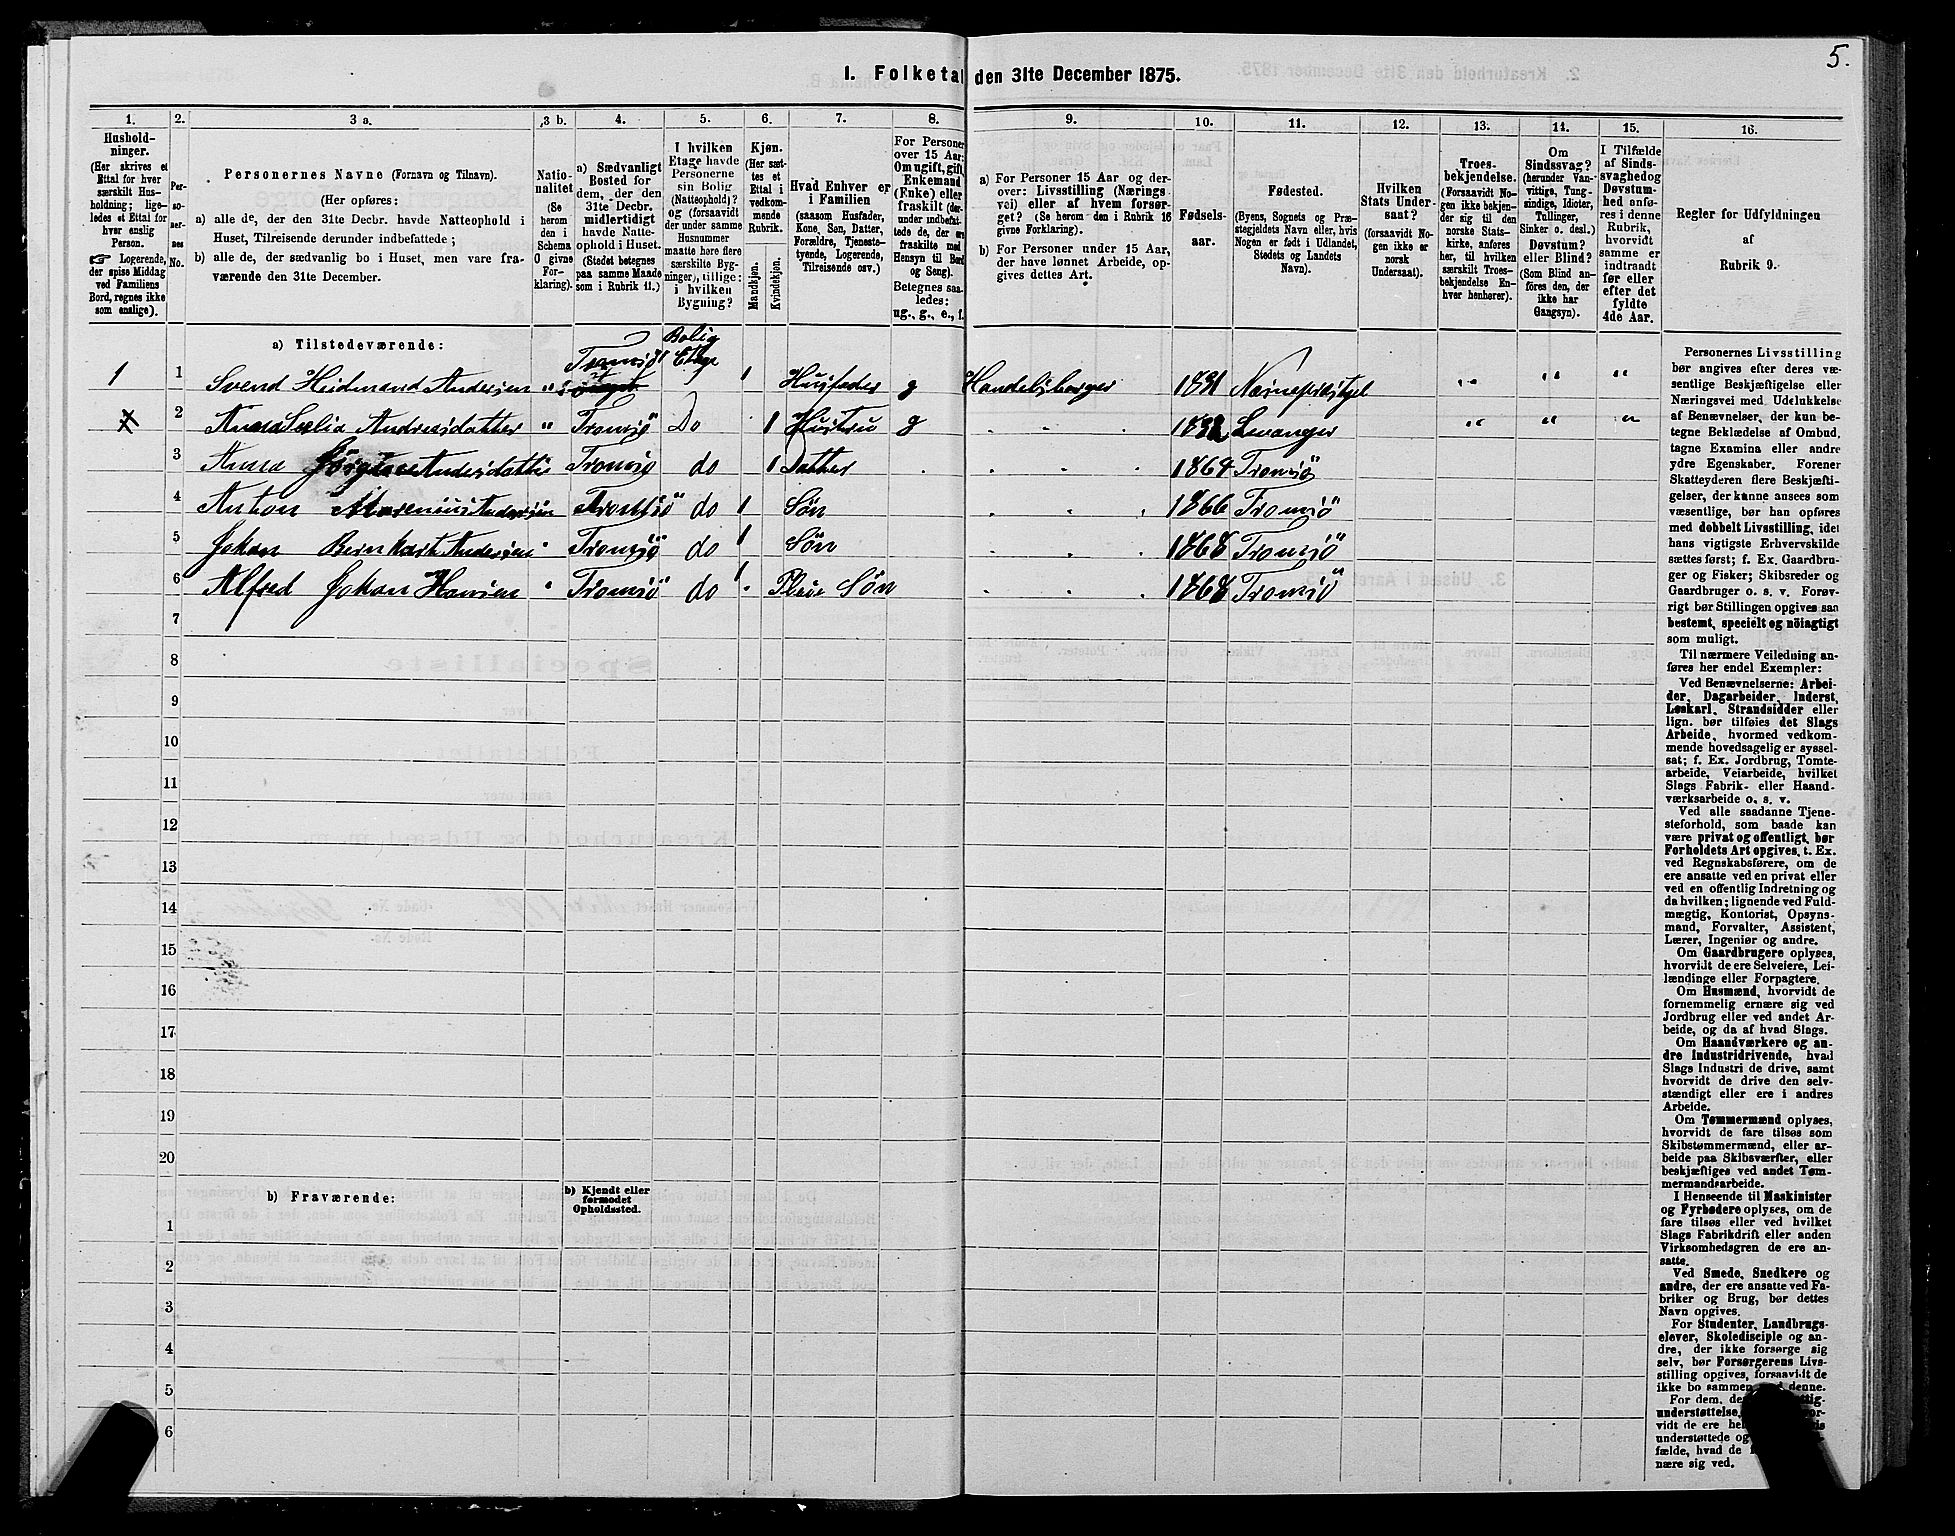 5.
I. Folketal den 31te December 1875.
1.
Hushold-
ninger.
(Her skrives et
Ettal for hver
særskilt Hus-
holdning; lige-
ledes et Ettal for
hver enslig
Person.
Logerende,
der spise Middag
ved Familiens
Bord, regnes ikke
som enslige).
2.
Per-
so-
ner-
nes
No.
3 a.
Personernes Navne (Fornavn og Tilnavn).
(Her opføres:
a) alle de, der den 31te Decbr. havde Natteophold i
Huset, Tilreisende derunder indbefattede;
b) alle de, der sædvanlig bo i Huset, men vare fra-
værende den 31te December.
3 b.
Natio-
nalitet
(Se
herom
den i
Schema
O givne
For-
klaring).
4.
a) Sædvanligt
Bosted for
dem, der den
31te Decbr.
midlertidigt
havde Natte-
ophold i Huset.
(Stedet betegnes
paa samme Maade
som i Rubrik 11.)
5.
I hvilken
Etage havde
Personerne
sin Bolig
(Natteophold)?
og (forsaavidt
der under samme
Husnummer
maatte høre flere
særskilte Byg-
ninger), tillige:
i hvilken
Bygning?
6.
Kjøn.
(Her sæt-
tes et
Ettal i
vedkom-
mende
Rubrik.
Mandkjøn.
Kvindekjøn.
7.
Hvad Enhver er
i Familien
(saasom Husfader,
Kone, Søn, Datter,
Forældre, Tjeneste-
tyende, Logerende,
Tilreisende osv.)
8.
For Personer
over 15 Aar:
Om ugift, gift,
Enkemand
(Enke) eller
fraskilt (der-
under indbefat-
tede de, der ere
fraskilte med
Hensyn til Bord
og Seng).
Betegnes saa-
ledes:
ug., g., e., f.
9.
a) For Personer 15 Aar og der-
over: Livsstilling (Nærings-
vei) eller af hvem forsør-
get? (Se herom den i Rubrik 16
givne Forklaring).
b) For Personer under 15 Aar,
der have lønnet Arbeide, op-
gives dettes Art.
10.
Fødsels-
aar.
11.
Fødested.
(Byens, Sognets og Præ-
stegjeldets Navn eller, hvis
Nogen er født i Udlandet,
Stedets og Landets
Navn).
12.
Hvilken
Stats Under-
saat?
(forsaavidt No-
gen ikke er
norsk
Undersaat).
13.
Troes-
bekjendelse.
(Forsaavidt No-
gen ikke bekjen-
der sig til den
norske Stats-
kirke, anføres
her, til hvilken
særskilt Troes-
bekjendelse En-
hver henhører).
14.
Om
Sindssvag?
(herunder Van-
vittige, Tung-
sindige, Idioter,
Tullinger,
Sinker o. desl.)
Døvstum?
eller Blind?
(Som Blind an-
føres den, der
ikke har
Gangsyn).
15.
I Tilfælde
af Sinds-
svaghed og
Døvstum-
hed anfø-
res i denne
Rubrik,
hvorvidt
samme er
indtraadt
før eller
efter det
fyldte
4de Aar.
16.
Regler for Udfyldningen
af
Rubrik 9.
a) Tilstedeværende:
1 1 Svend Hedmand Andersen " Tromsö Bolig Etage 1 Husfader g Handelsborger 1831 " " "
2 Anna Andresdatter " Tromsö Do 1 Hustru g 1832 Levanger " " "
3 Anna Andersdatter Tromsö do 1 Datter 1864 Tromsö
4 Anton Mareniusi Andersen Tromsö do 1 Sön 1866 Tromsö
5 Johan Bernhart Andersen Tromsö do 1 Sön 1868 Tromsö
6 Alfred Johan Hansen Tromsö do 1 Pleie Sön 1868 Tromsö
7
8
9
10
11
12
13
14
15
16
17
18
19
20
b) Fraværende:
b) Kjendt eller
formodet
Opholdssted.
1
2
3
4
5
6
Personernes Livsstilling
bør angives efter deres væ-
sentlige Beskjæftigelse eller
Næringsvei med Udelukkelse
af Benævnelser, der kun be-
tegne Beklædelse af Ombud,
tagne Examina eller andre
ydre Egenskaber. Forener
Skatteyderen flere Beskjæfti-
gelser, der kunne ansees som
væsentlige, bør han opføres
med dobbelt Livsstilling, idet
hans vigtigste Erhvervskilde
sættes først; f. Ex. Gaardbru-
ger og Fisker; Skibsreder og
Gaardbruger o. s. v. Forøv-
rigt bør Stillingen opgives saa
bestemt, specielt og nöiagtigt
som muligt.
Til nærmere Veiledning an-
føres her endel Exempler:
Ved Benævnelserne: Arbei-
der, Dagarbeider, Inderst,
Løskarl, Strandsidder eller
lign. bør tilføies det Slags
Arbeide, hvormed vedkom-
mende hovedsagelig er syssel-
sat; f. Ex. Jordbrug, Tomte-
arbeide, Veiarbeide, hvilket
Slags Fabrik- eller Haand-
værksarbeide o. s. v.
Ved alle saadanne Tjene-
steforhold, som baade kan
være privat og offentligt, bør
Forholdets Art opgives, t. Ex.
ved Regnskabsførere, om de
ere ansatte ved en privat eller
ved en offentlig Indretning og
da hvilken; lignende ved Fuld-
mægtig, Kontorist, Opsyns-
mand, Forvalter, Assistent,
Lærer, Ingeniør og andre.
Om Gaardbrugere oplyses,
hvorvidt de ere Selveiere, Lei-
lændinge eller Forpagtere.
Om Husmænd, hvorvidt de
fornemmelig ernære sig ved
Jordbrug eller ved andet Ar-
beide, og da af hvad Slags.
Om Haandværkere og an-
dre Industridrivende, hvad
Slags Industri de drive, samt
hvorvidt de drive den selv-
stændigt eller ere i andres
Arbeide.
Om Tømmermænd oplyses,
hvorvidt de fare tilsøs som
Skibstømmermænd, eller ar-
beide paa Skibsværfter, eller
beskjæftiges ved andet Tøm-
mermandsarbeide.
I Henseende til Maskinister
og Fyrbødere oplyses, om de
fare tilsøs eller ved hvilket
Slags Fabrikdrift eller anden
Virksomhedsgren de ere an-
satte.
Ved Smede, Snedkere og
andre, der ere ansatte ved Fa-
briker og Brug, bør dettes
Navn opgives.
For Studenter, Landbrugs-
elever, Skoledisciple og an-
dre, der ikke forsørge sig
selv, bør Forsørgerens Livs-
stilling opgives, forsaavidt de
ikke bo sammen med denne.
For dem, de
understøttelse,
vidt de ere
understøttede og
fælde, hvad de
nære sig ved.